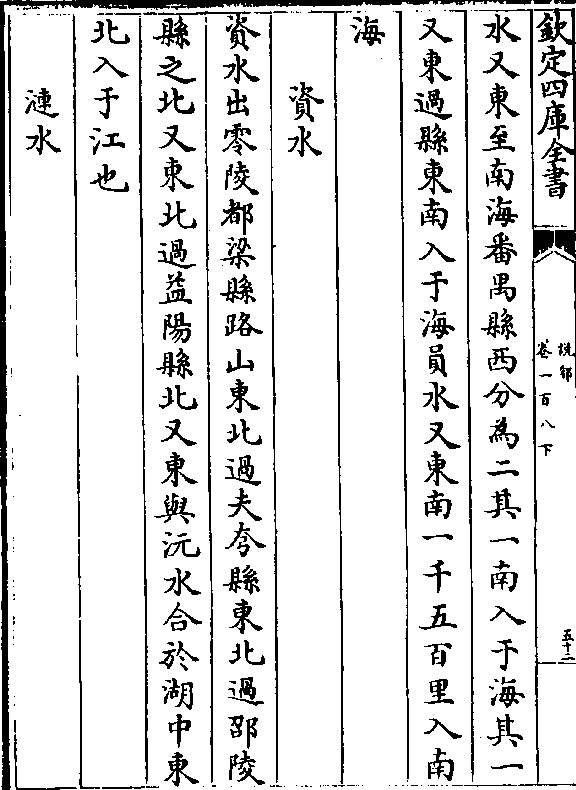 欽定四庫全書
説郛
卷一百八下
五十二
水又東至南海番禺縣西分為二其一南入于海其一
又東過縣東南入于海員水又東南一千五百里入南
海
資水
資水出零陵都梁縣路山東北過夫夸縣東北過邵陵
縣之北又東北過益陽縣北又東與沅水合於湖中東
北入于江也
漣水